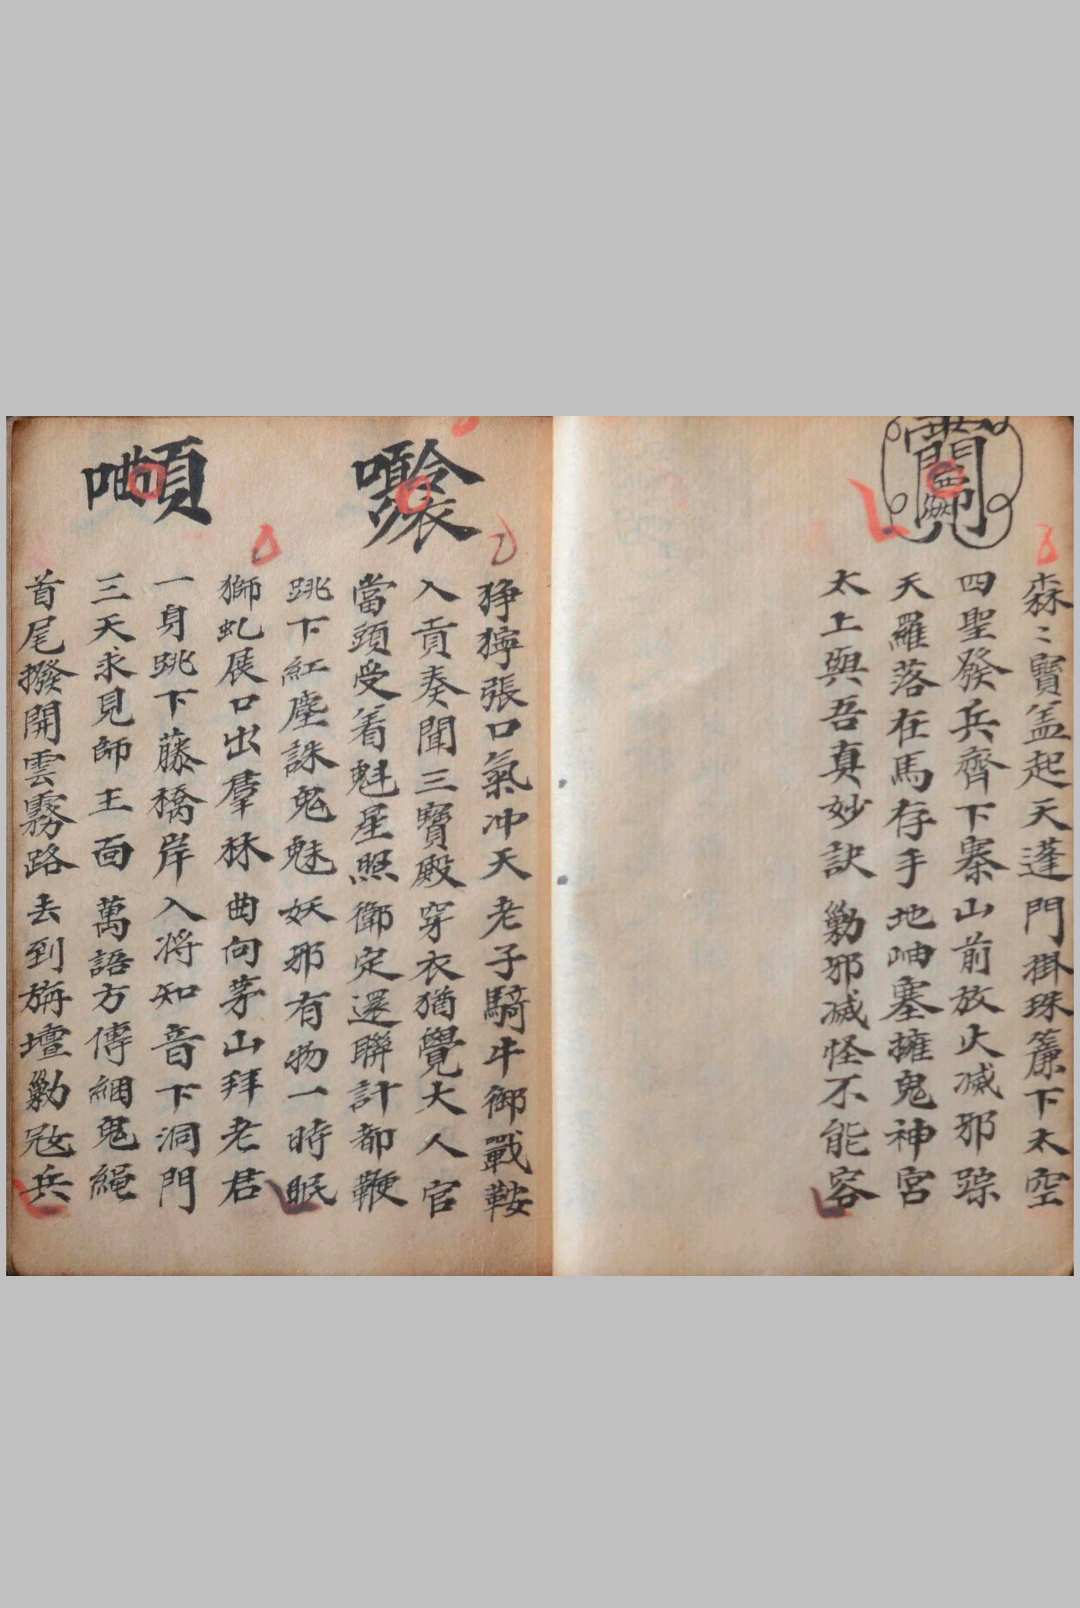 森〻寶盖起天蓬門掛珠簾下太空
四聖發兵齊下寨山前放火滅邪踪
天羅落在馬存手地岫塞擁鬼神宮
太上與吾真妙訣勦邪滅怪不能容
狰獰張口氣冲天老子騎牛御戰鞍
入貢奏聞三寶殿穿衣猶覺大人官
當頭受着魁星照衛定還聯計都鞭
跳下紅塵誅鬼魅妖邪有物一時眠
獅虬展口出羣林曲向茅山拜老君
一身跳下藤橋岸入將知音下洞門
三天永見師王面萬語方傳綑鬼繩
首尾撥開雲霧路去到旃壇勦寇兵